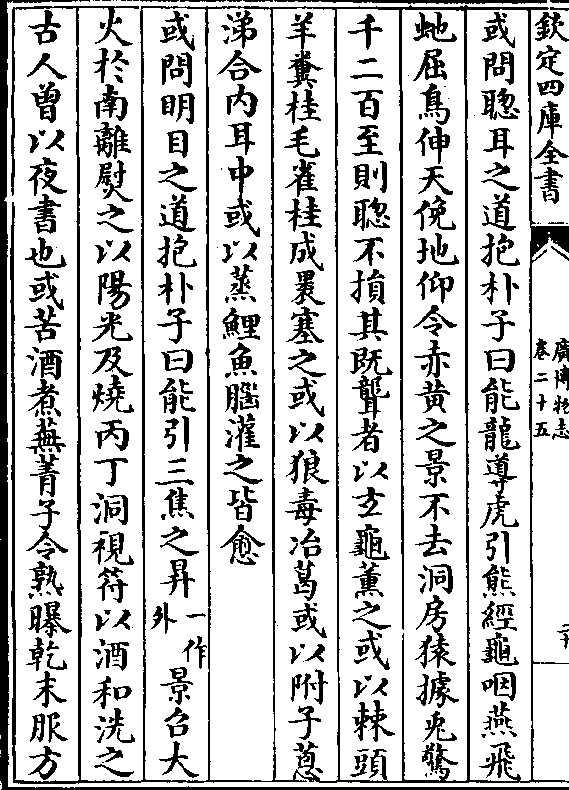 欽定四庫全書
廣博物志
卷二十五
或問聦耳之道抱朴子曰能龍導虎引熊經龜咽燕飛
虵屈鳥伸天俛地仰令赤黄之景不去洞房猿據兎驚
千二百至則聦不損其既聾者以玄龜薫之或以棘頭
羊糞桂毛雀桂成裹塞之或以狼毒冶葛或以附子蔥
涕合内耳中或以蒸鯉魚腦灌之皆愈
或問明目之道抱朴子曰能引三焦之昇一作外景召大
火於南離熨之以陽光及燒丙丁洞視符以酒和洗之
古人曾以夜書也或苦酒煮蕪菁子令熟曝乾末服方